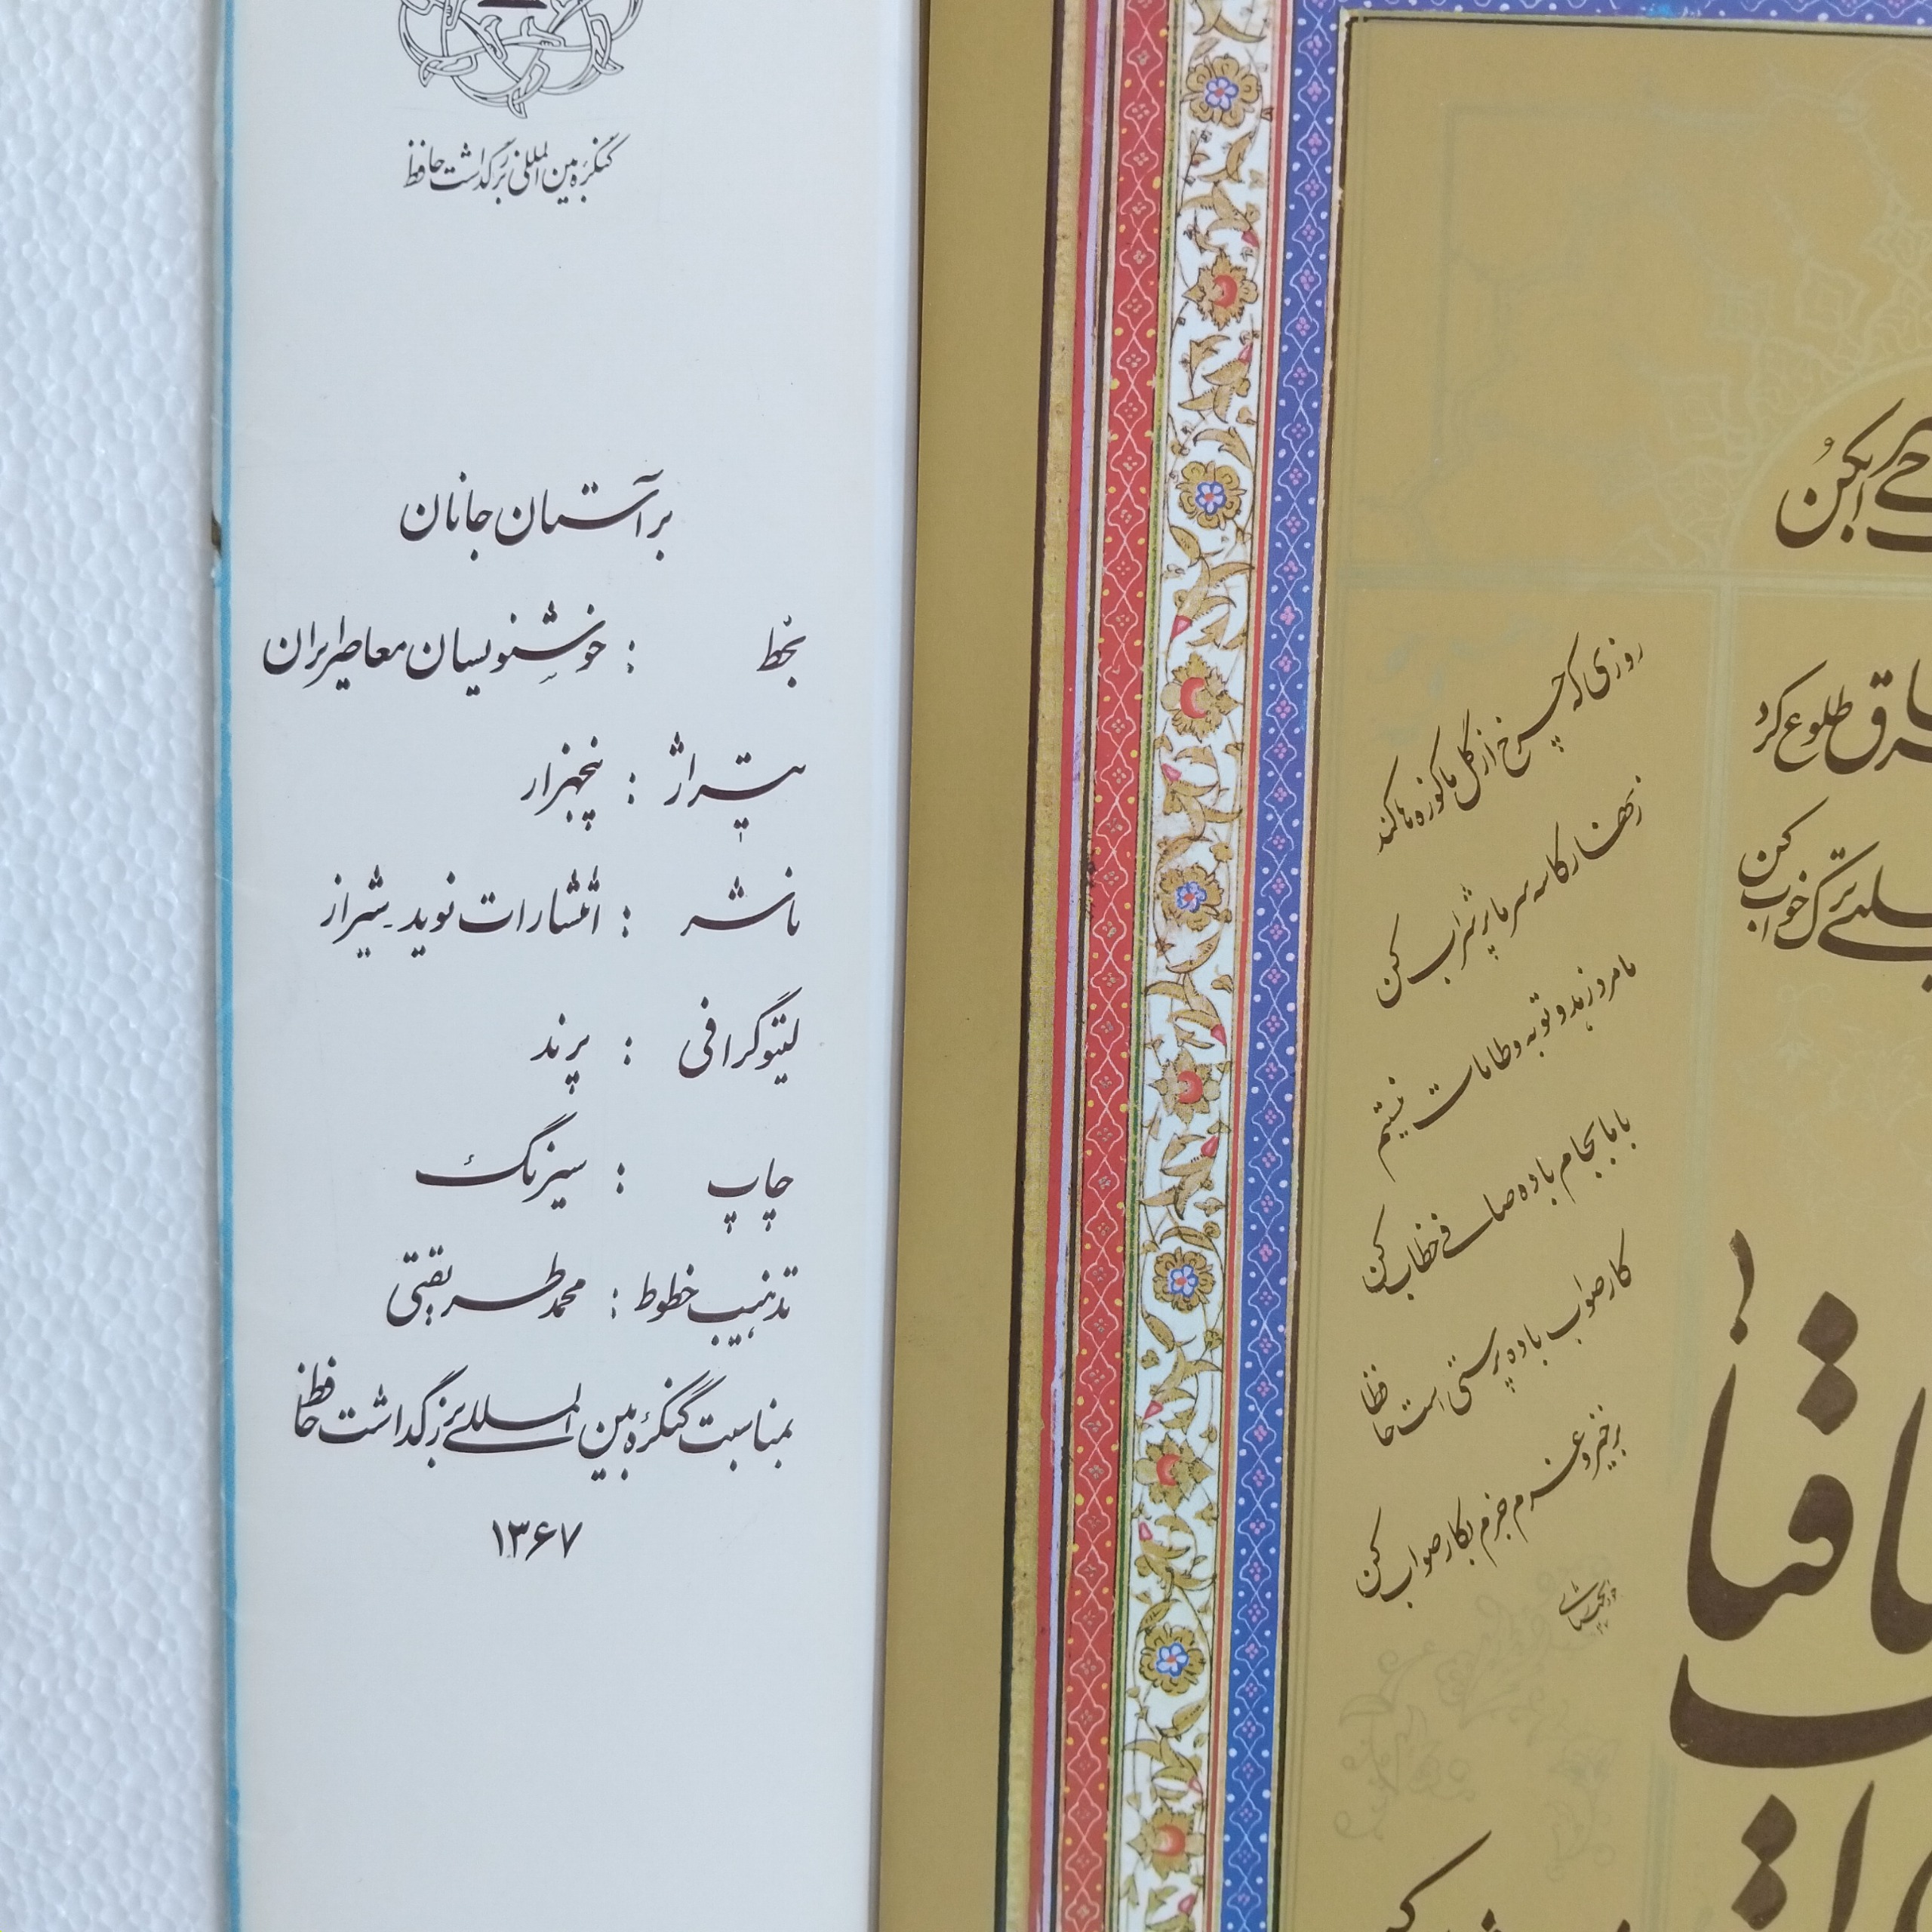 کنگره بین المللی بزرگداشت حافظ
بر آستان جانان
بخط : خوشنویسان معاصر ایران
تیراژ : پنجهزار
ناشر : انتشارات نوید - شیراز
لیتوگرافی : پرند
چاپ : سیزنگ
تذهیب خطوط : محمد طریقتی
بمناسبت کنگره بین المللی بزرگداشت حافظ
۱۳۶۷
طلوع کرد
ترک خواب کن
روزی که چرخ از گل ما کوزه ها کند
زنهار کاسه سر ما پر شراب کن
ما مرد زهد و توبه و طامات نیستیم
با ما بجام باده صافی خطاب کن
کار صواب باده پرستی است حافظا
برخیز و عزم جزم بکار صواب کن